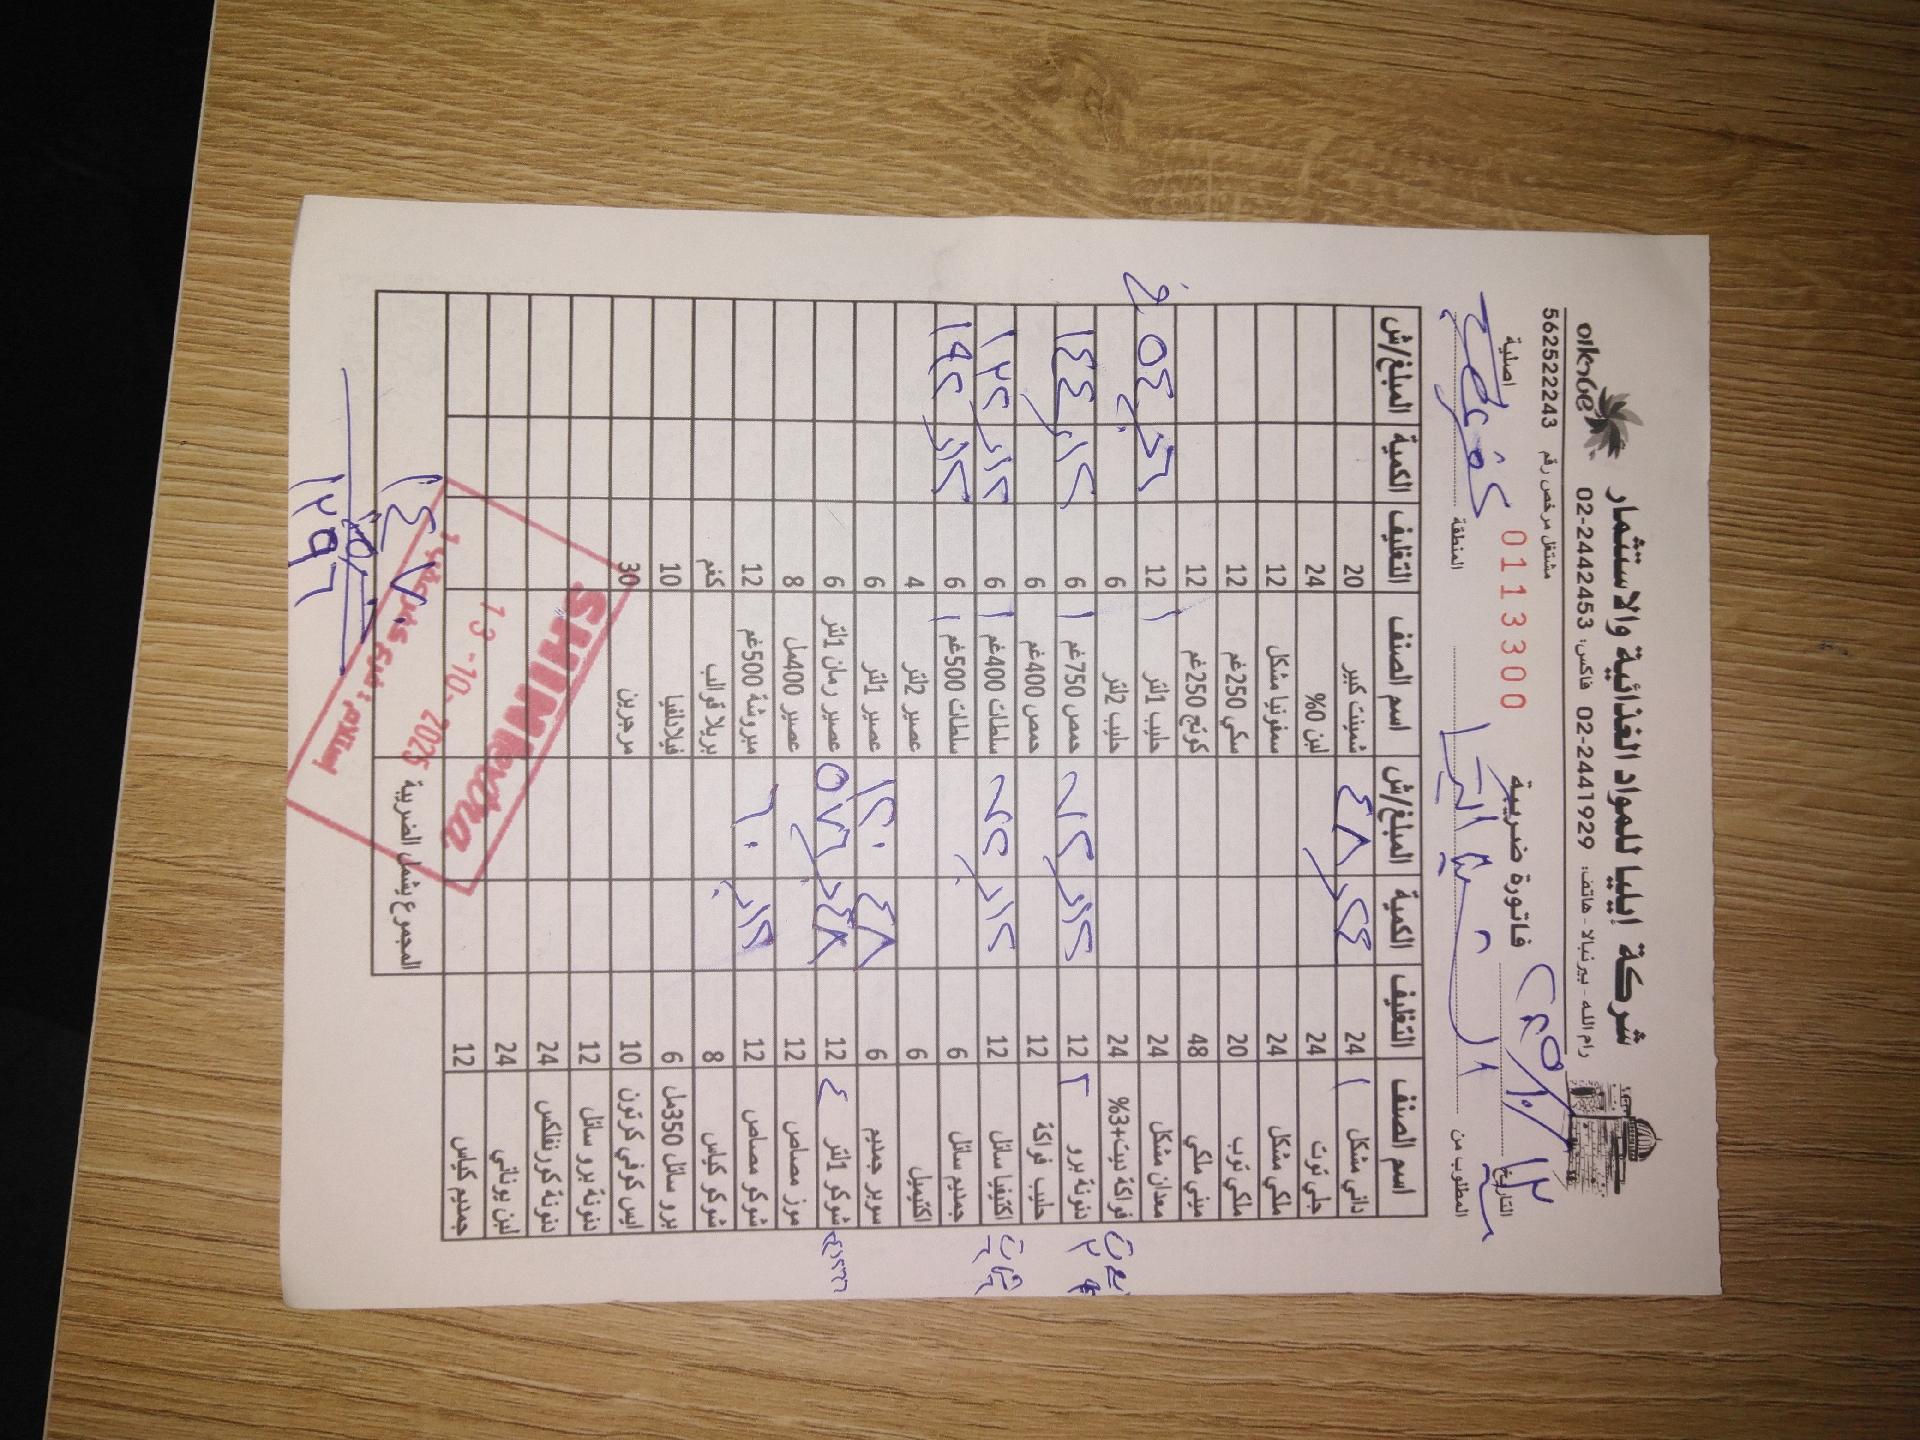 شركة إيليا للمواد الغذائية والاستثمار
رام الله - بيرنبالا - هاتف: 02-2441929 فاكس: 02-2442453
مشتغل مرخص رقم 562522243
فاتورة ضريبية 0113300 اصلية
التاريخ ١٣/١٠/٢٥
المطلوب من المنطقة
اسم الصنف التغليف الكمية المبلغ/ش اسم الصنف التغليف الكمية المبلغ/ش
داني مشكل ١ 24 ٢٤ ٤٨ شمينت كبير 20
جلي توت 24 لبن 0% 24
ملكي مشكل 24 سمفونيا مشكل 12
ملكي توب 20 سكي 250غم 12
ميني ملكي 48 كوتج 250غم 12
معدان مشكل 24 حليب 1لتر ١ 12
فواكة دييت+3% 24 حليب 2لتر 6
دنونة برو ٢ 12 ١٢ ٧٢ حمص 750غم ١ 6 ١٢ ١٤٤
حليب فواكة 12 حمص 400غم 6
اكتيفيا سائل 12 ١٢ ٧٢ سلطات 400غم ١ 6 ١٢ ١٣٢
جمديم سائل 6 سلطات 500غم ١ 6 ١٢ ١٩٢
اكتيميل 6 عصير 2لتر 4
سوبر جمديم 6 عصير 1لتر 6
شوكو 1لتر ٤ 12 ٤٨ ٥٧٦ عصير رمان 1لتر 6
موز مصاص 12 عصير 400مل 8
شوكو مصاص 12 ١٢ ٦٠ مبروشة 500غم 12
شوكو كياس 8 بريلا قوالب كغم
برو سائل 350مل 6 فيلادلفيا 10
ايس كوفي كرتون 10 مرجرين 30
دنونة برو سائل 12
دنونة كورنفلكس 24
لبن يوناني 24
جمديم كياس 12
المجموع يشمل الضريبة
SHINI extra
13-10-2025
١٢٩٦